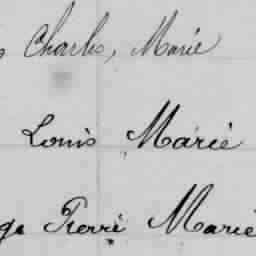 Charles, Marie
Louis Marie
Pierre Marie